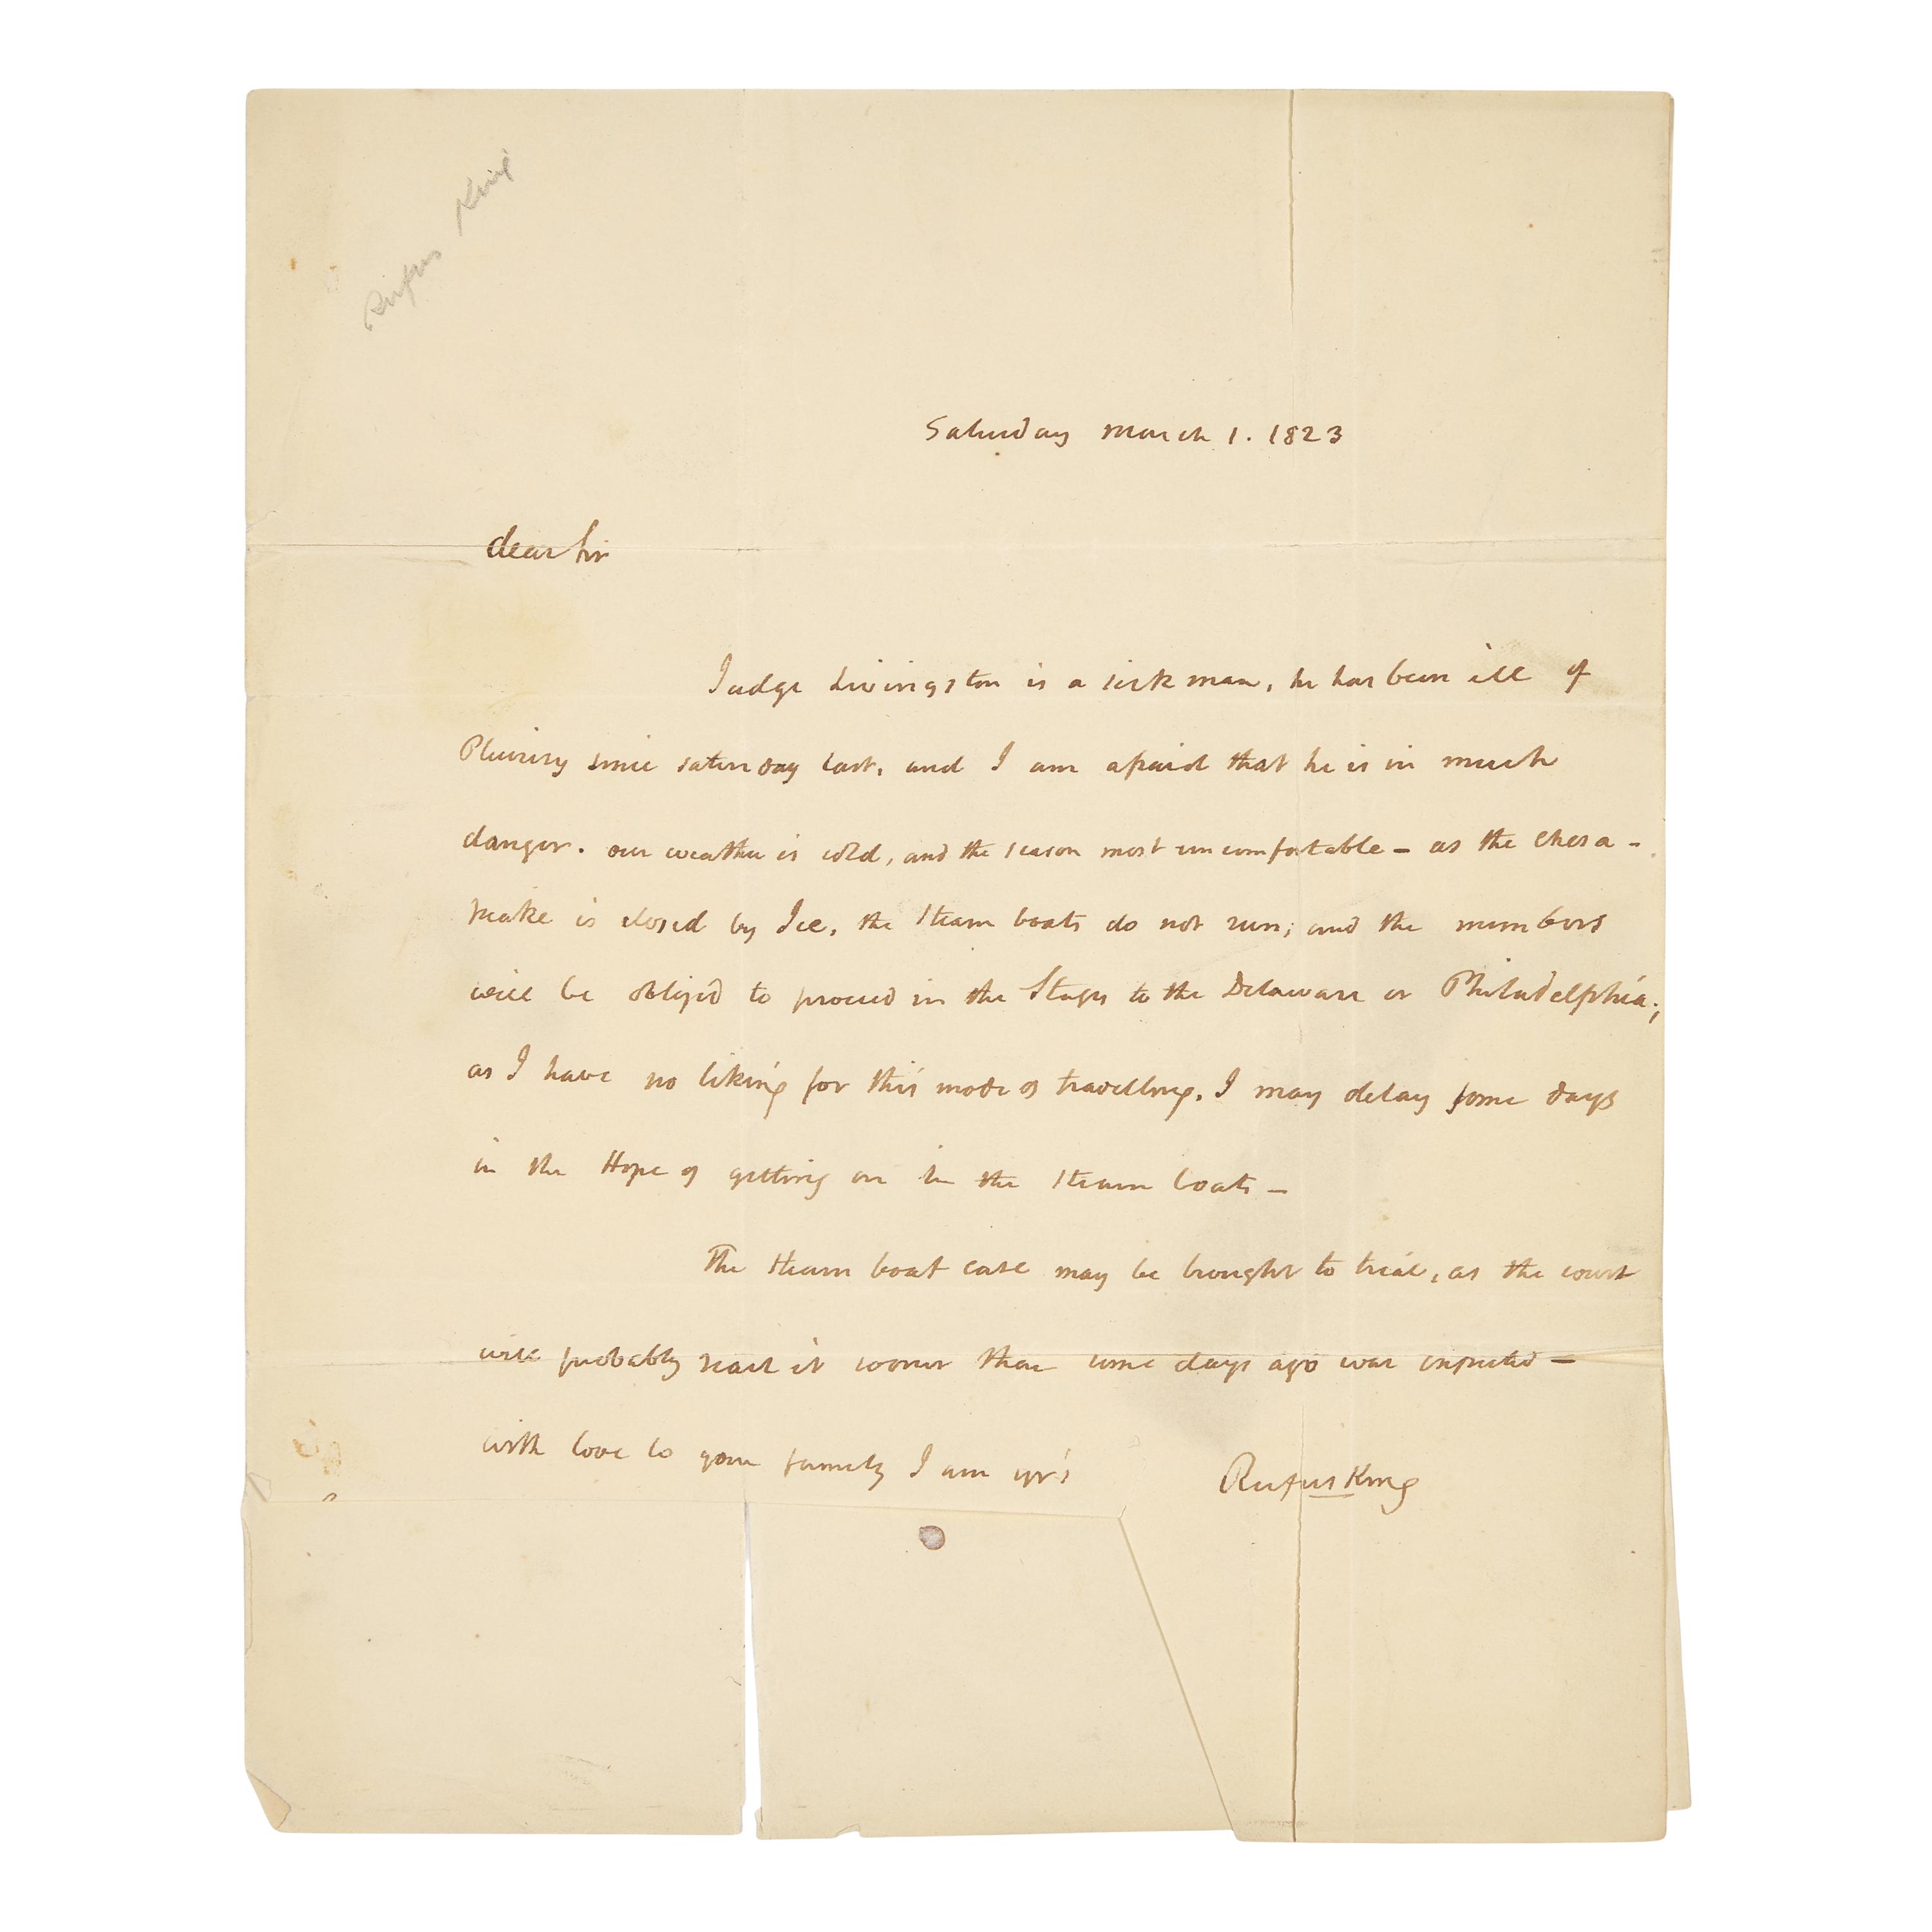 Rufus King
Saturday March 1. 1823
dear Sir
Judge Livingston is a sick man, he has been ill of
Pleurisy since saturday last, and I am afraid that he is in much
danger. our weather is cold, and the season most uncomfortable – as the Chesa-
peake is closed by Ice, the Steam boats do not run; and the members
will be obliged to proceed in the Stages to the Delaware or Philadelphia;
as I have no liking for this mode of travelling, I may delay some days
in the Hope of getting on in the Steam boats –
The Steam boat case may be brought to trial, as the court
will probably reach it sooner than some days ago was expected –
with love to your family I am yrs
Rufus King